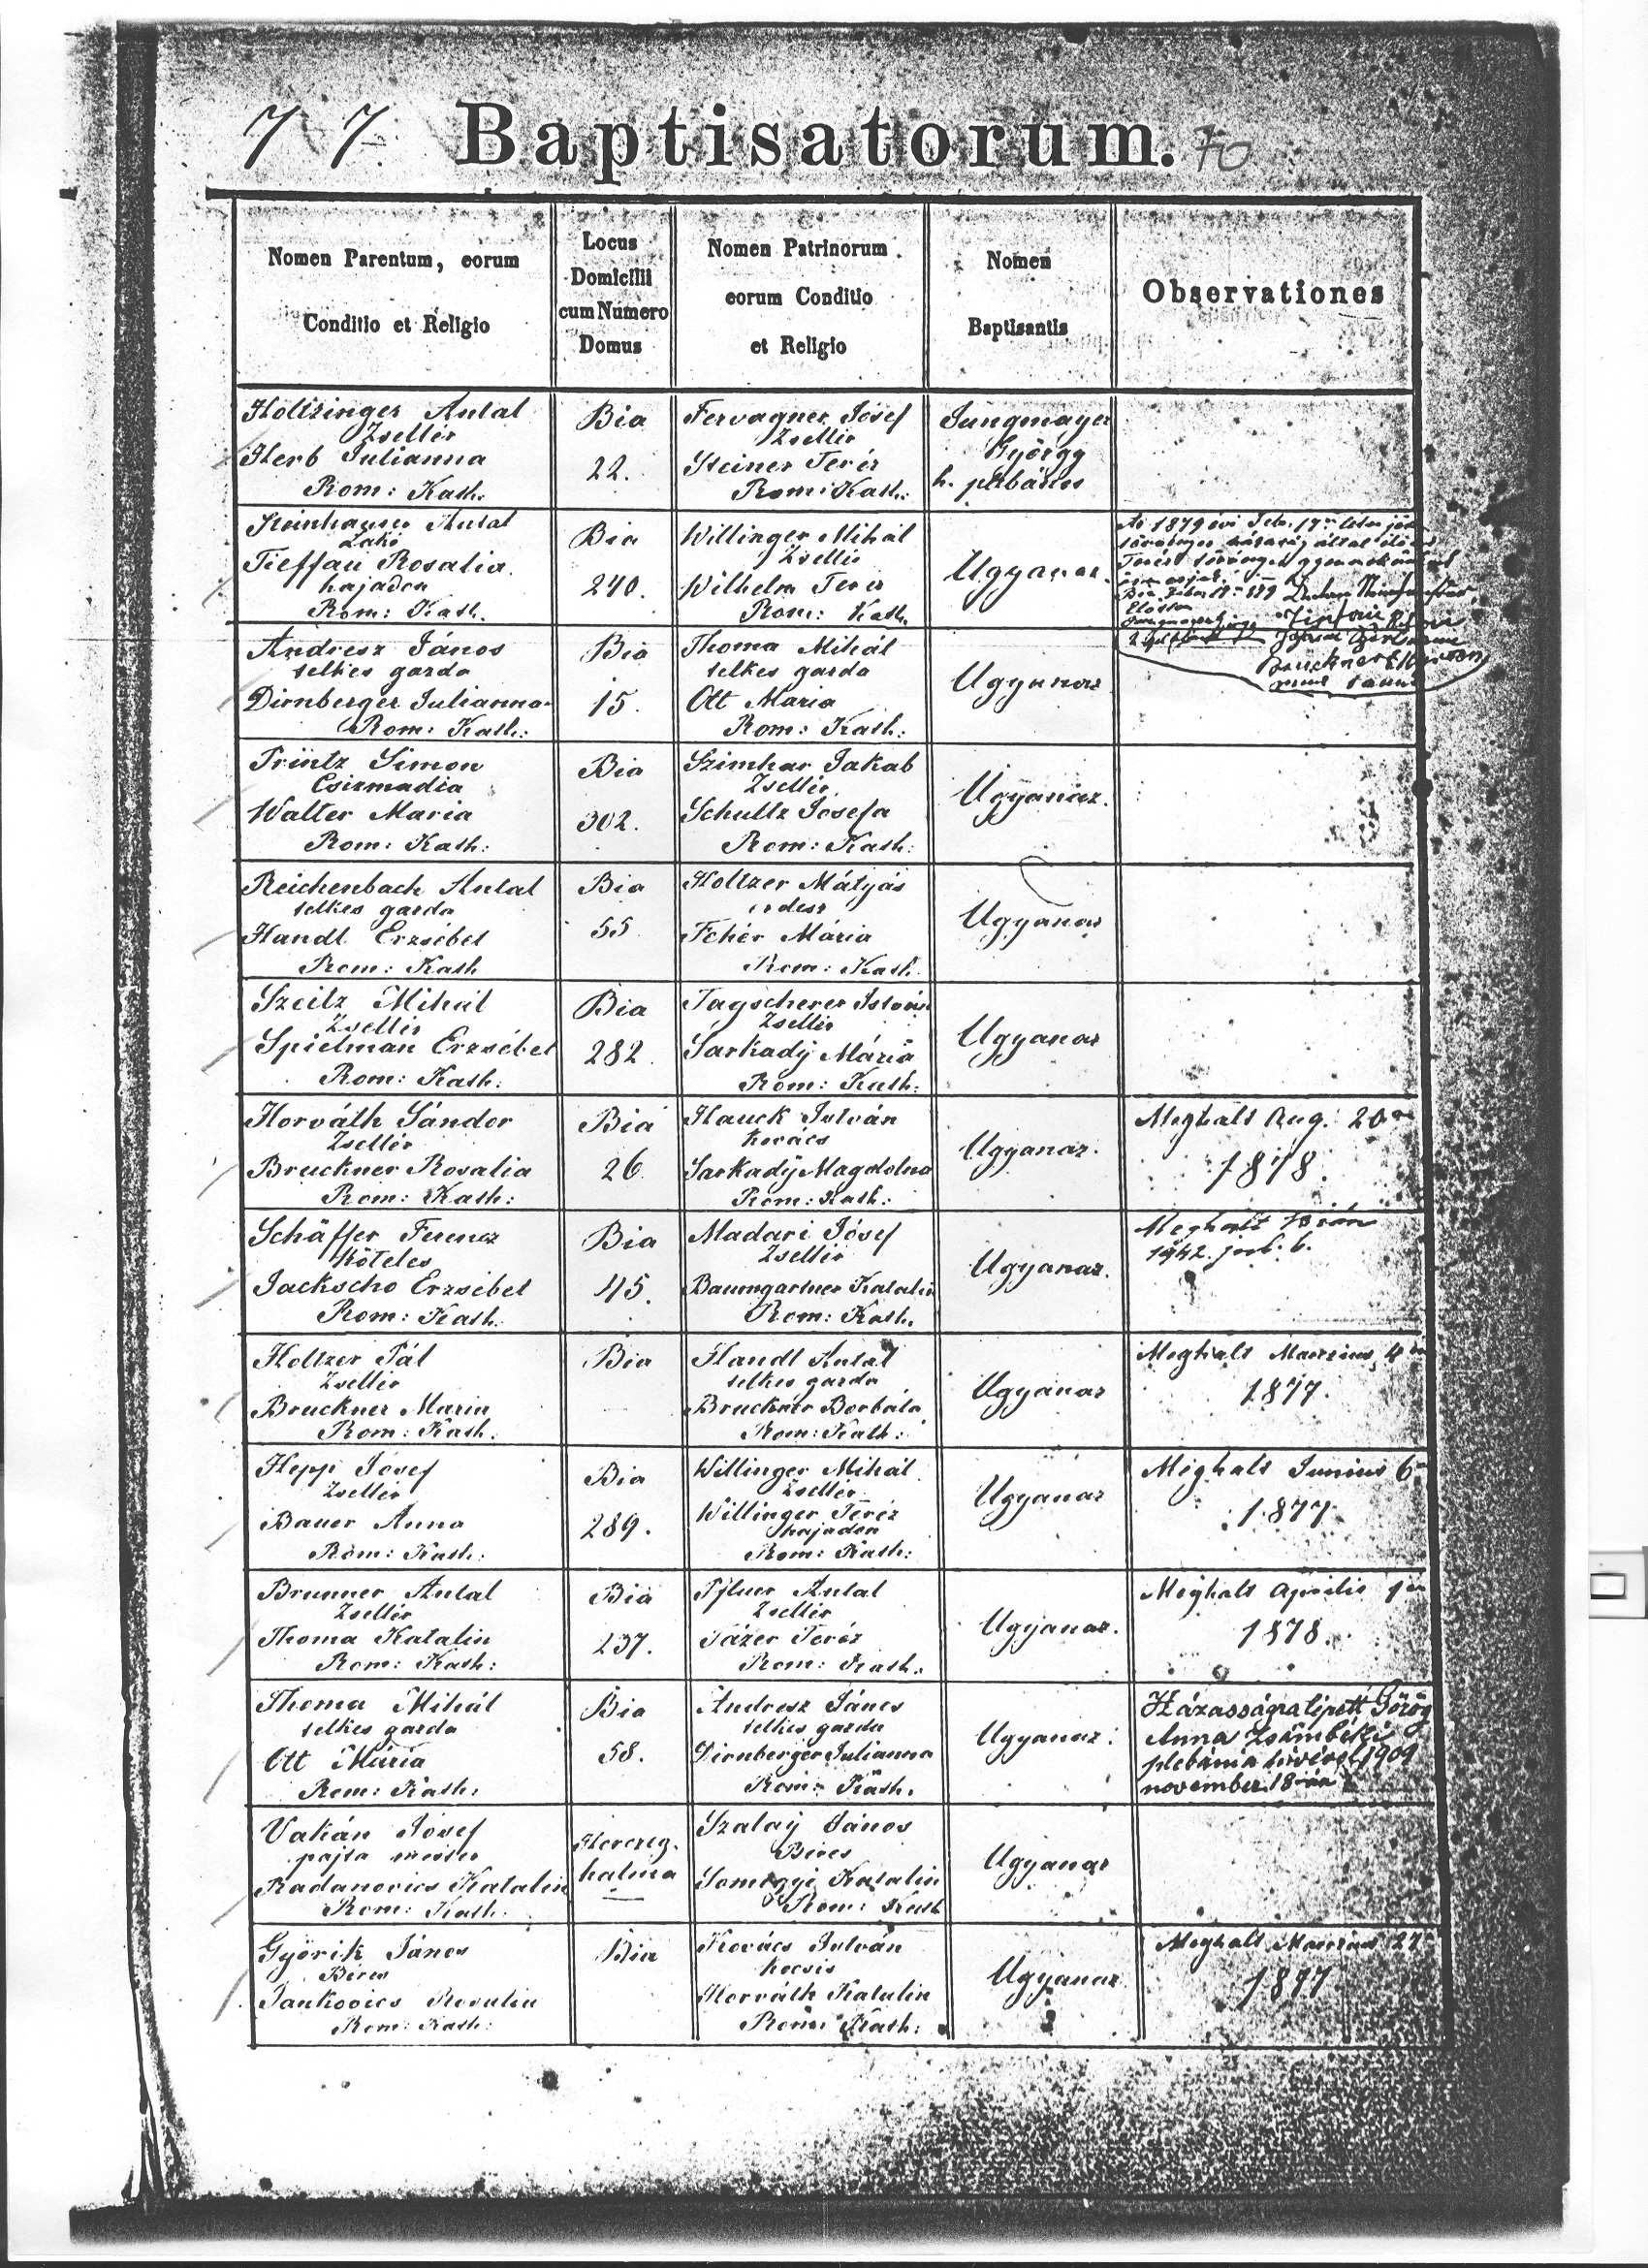 77. Baptisatorum. 70
Nomen Parentum, eorum
Conditio et Religio
Locus
Domicilii
cum Numero
Domus
Nomen Patrinorum
eorum Conditio
et Religio
Nomen
Baptisantis
Observationes
Holtzinger Antal
Zsellér
Herb Julianna
Rom: Kath.
Bia
22.
Fervagner Józef
Zsellér
Steiner Teréz
Rom: Kath:
Jungmayer
György
h. plébános
Steinhauser Antal
Lakó
Tieffau Rosalia
hajadon
Rom: Kath.
Bia
240.
Willinger Mihál
Zsellér
Wilhelm Teréz
Rom: Kath.
Ugyanaz.
Az 1879 évi Feb. 17
törvényes házasság által
Andresz János
telkes gazda
Dirnberger Julianna
Rom: Kath:
Bia
15.
Thoma Mihál
telkes gazda
Ott Maria
Rom: Kath:
Ugyanaz
Printz Simon
Csizmadia
Walter Maria
Rom: Kath:
Bia
302.
Szimhar Jakab
Zsellér
Schultz Josefa
Rom: Kath:
Ugyanaz.
Reichenbach Antal
telkes gazda
Handl Erzsébet
Rom: Kath
Bia
55
Holtzer Mátyás
erdész
Fehér Mária
Rom: Kath.
Ugyanaz
Szeitz Mihál
Zsellér
Spielman Erzsébet
Rom: Kath:
Bia
282.
Tagscherer István
Zsellér
Sarkadÿ Mária
Rom: Kath:
Ugyanaz
Horváth Sándor
Zsellér
Bruckner Rosalia
Rom: Kath:
Bia
26
Hauck István
kovács
Sarkadÿ Magdolna
Rom: Kath:
Ugyanaz.
Meghalt Aug. 20án
1878.
Schäffer Ferencz
Köteles
Jackscho Erzsébet
Rom: Kath.
Bia
45.
Madari Józef
Zsellér
Baumgartner Katalin
Rom: Kath.
Ugyanaz.
Meghalt Bián
1942. feb. 6.
Holtzer Pál
Zsellér
Bruckner Maria
Rom: Kath.
Bia
Handl Antal
telkes gazda
Bruckner Borbála
Rom: Kath:
Ugyanaz
Meghalt Marzius 4én
1877.
Hepp Józef
Zsellér
Bauer Anna
Rom: Kath:
Bia
289.
Willinger Mihál
Zsellér
Willinger Teréz
hajadon
Rom: Kath:
Ugyanaz
Meghalt Junius 6
1877
Brunner Antal
Zsellér
Thoma Katalin
Rom: Kath:
Bia
237.
Antal
Zsellér
Teréz
Rom: Kath.
Ugyanaz.
Meghalt Április
1878.
Thoma Mihál
telkes gazda
Ott Mária
Rom: Kath:
Bia
58.
Andresz János
telkes gazda
Dirnberger Julianna
Rom: Kath.
Ugyanaz.
Házasságra lépett Görög
Anna Zsámbéki
plébánia hívével 1909
november 18-án
Vakán Józef
pajta mester
Radanovics Katalin
Rom: Kath.
Herczeg-
halma
Szalaÿ János
Béres
Somogyi Katalin
Rom: Kath
Ugyanaz
Györik János
Béres
Jankovics Rosalia
Rom: Kath:
Bia
Kovács István
kocsis
Horváth Katalin
Rom: Kath:
Ugyanaz
Meghalt Marzius 27
1877